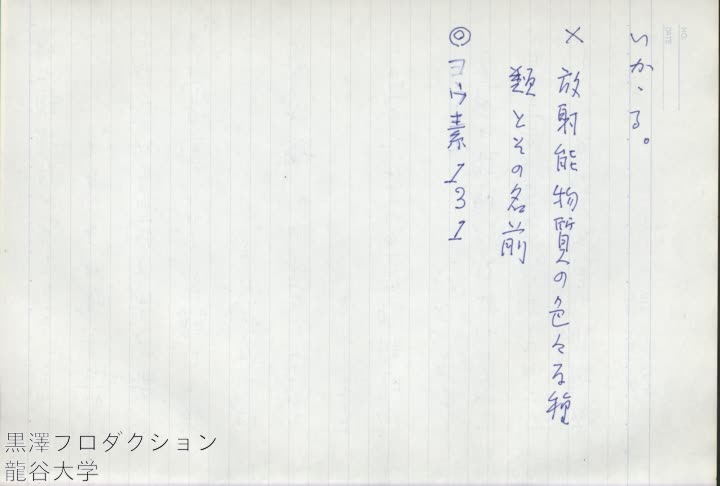 いかゝる。
× 放射能物質の色々な種
類とその名前
◎ ヨウ素131
黒澤フロダクション
龍谷大学